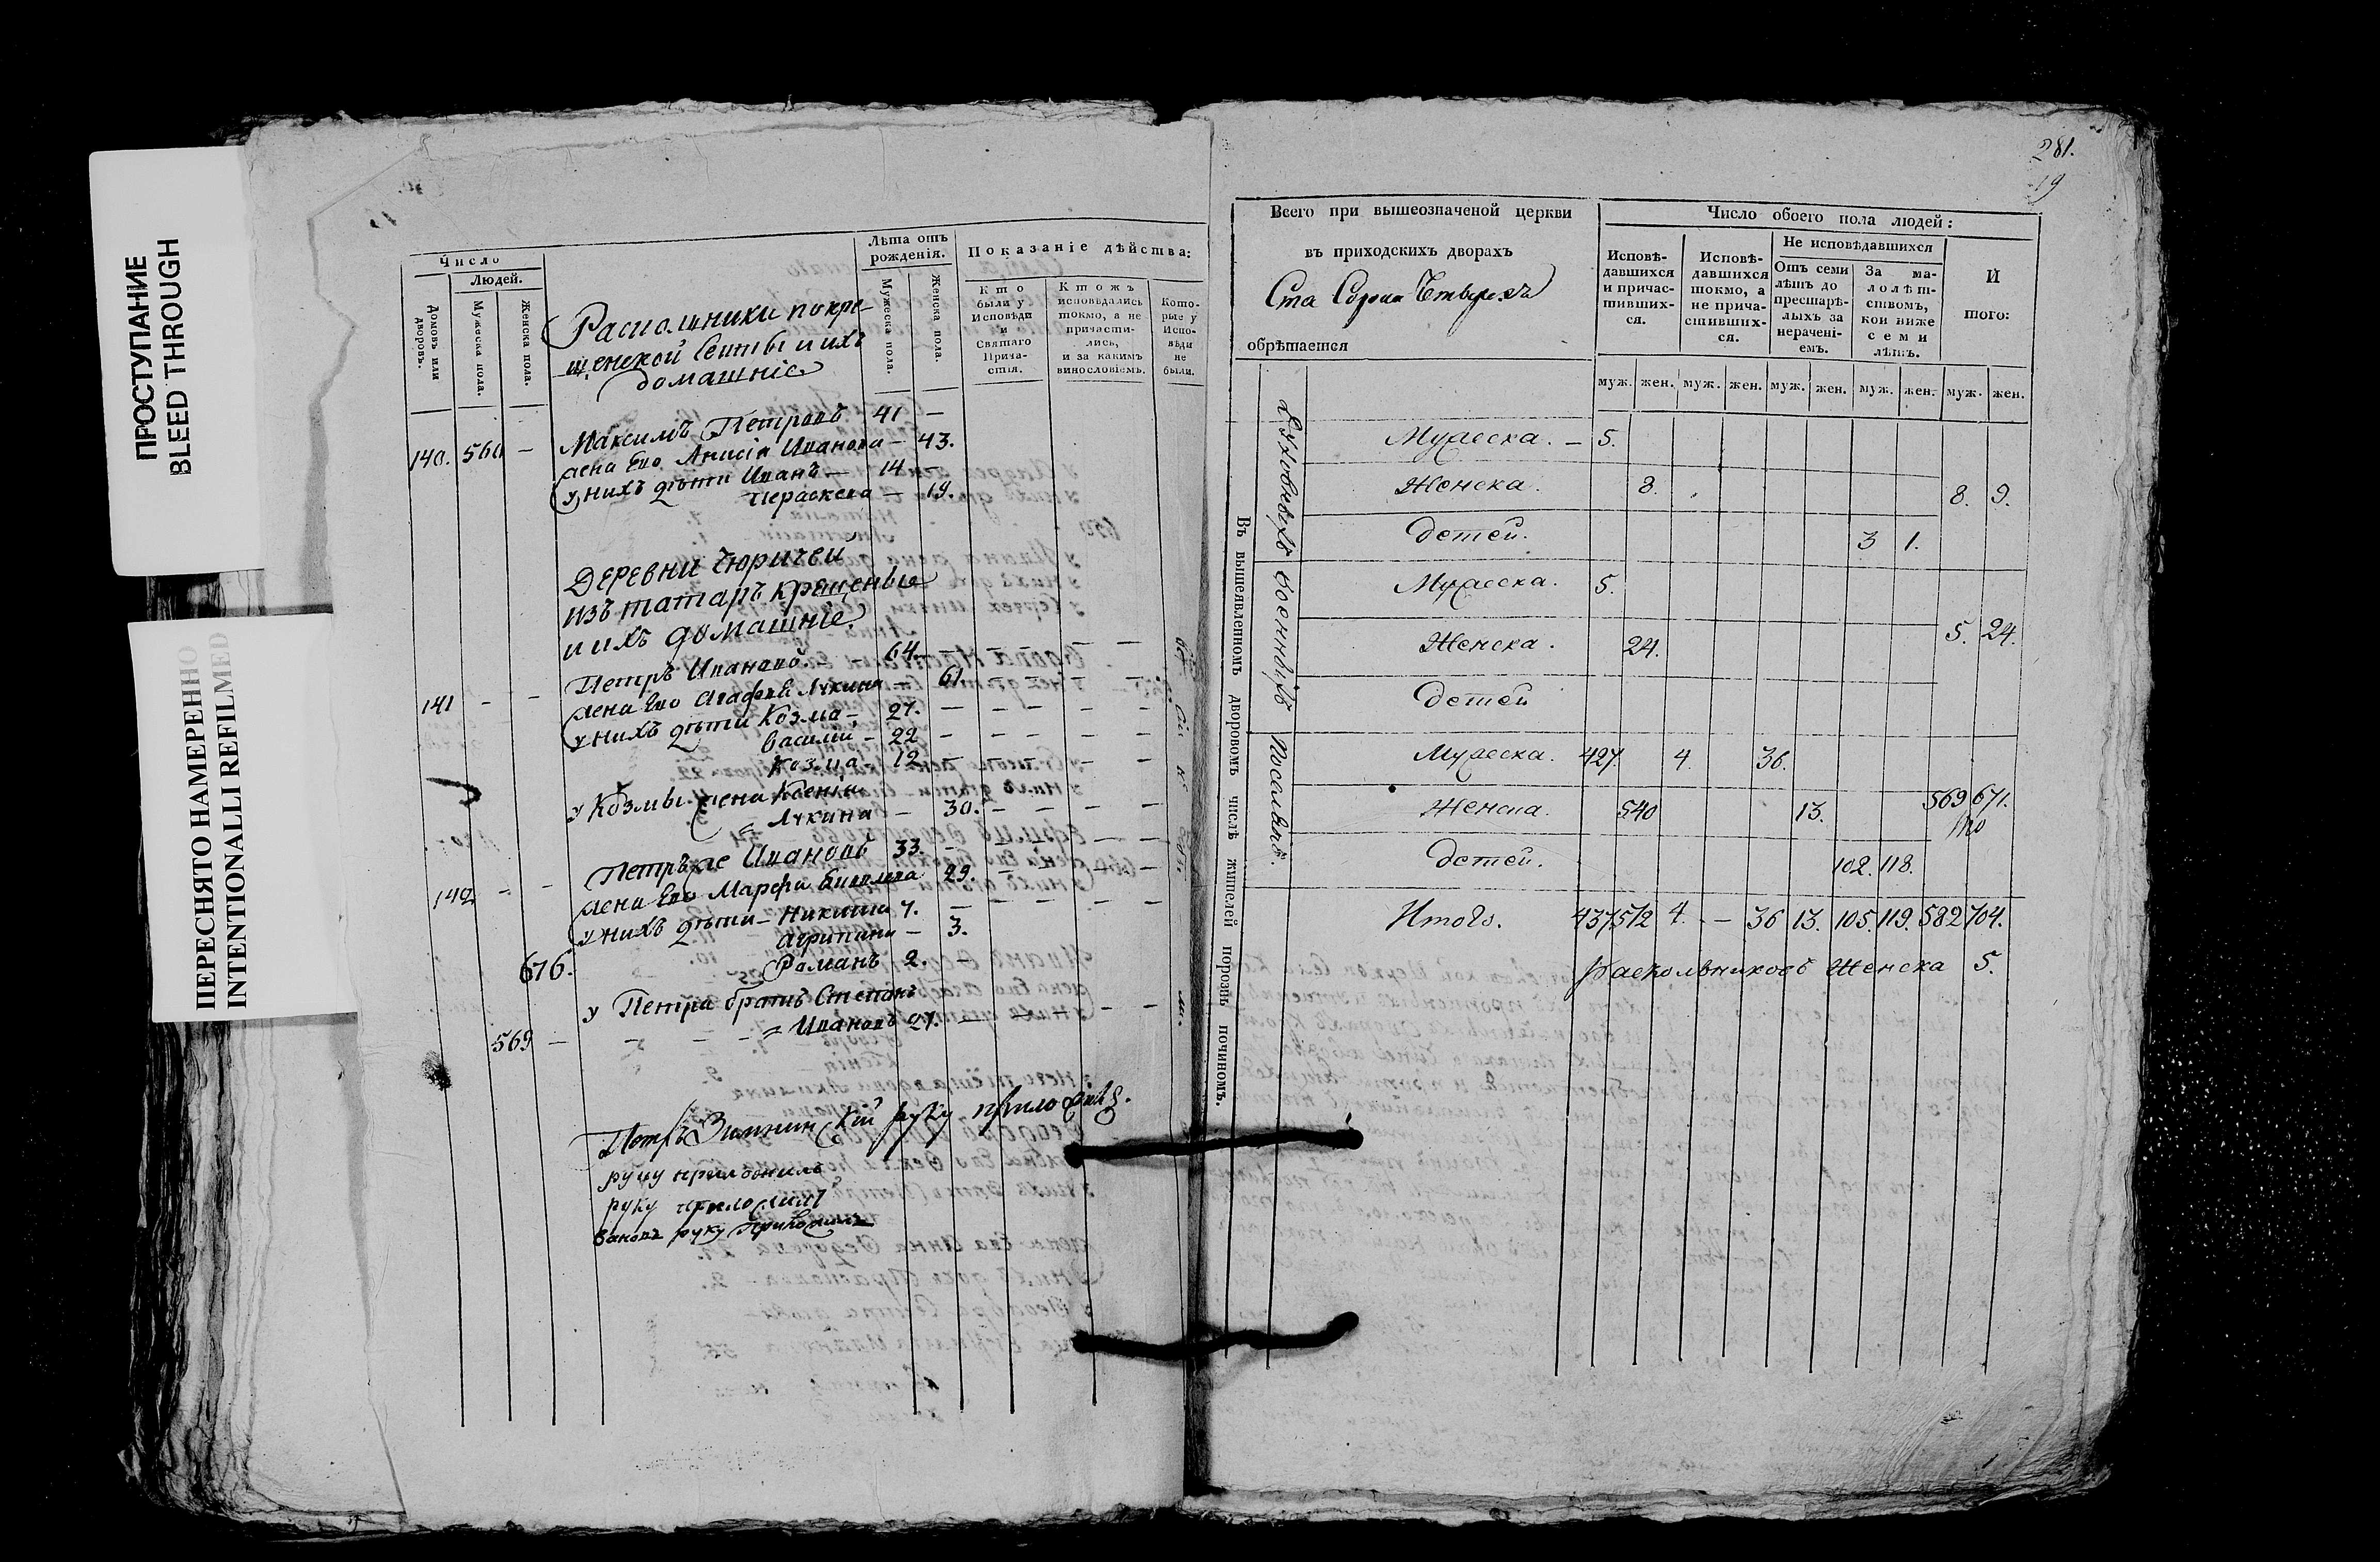 ПРОСТУПАНИЕ
BLEED THROUGH
ПЕРЕСНЯТО НАМЕРЕННО
INTENTIONALLI REFILMED
Число
Людей.
Домовъ или дворовъ.
Мужеска пола.
Женска пола.
Лѣта отъ рожденія.
Мужеска пола.
Женска пола.
Показаніе дѣйства:
Кто были у Исповѣди и Святаго Прича-стія.
Ктожъ исповѣдались токмо, а не причасти-лись, и за какимъ винословіемъ.
Кото-рые у Испо-вѣди не были.
домашніе
Максимъ Петровъ 41 —
140. 560 — жена Ево Анисія Иванова — 43.
у нихъ дѣти Иванъ — 14 —
— 19.
Деревни Тюричеи
изъ татаръ крещеныя
и ихъ домашніе.
Петръ Ивановъ — 64. — — — — —
141 - - жена Ево Агафья Лукина — 61. — — —
у нихъ дѣти Козма — 27. — — — — —
Василий — 22 — — — — —
Козма — 12. — — — —
у Козмы жена Ксенія
Лукина — 30. — — — —
Петръ же Ивановъ 33. — — — —
142 - - жена Ево Марфа 29. — — — —
у нихъ дѣти — Никита 7. — — — — —
Агрипина — 3.
676. Романъ 2. —
у Петра братъ Степанъ
= Ивановъ 27. — — — — —
569 — — — — —
руку приложилъ
руку приложилъ
руку приложилъ
руку приложилъ
281.
19
Всего при вышеозначеной церкви
въ приходскихъ дворахъ
обрѣтается
Число обоего пола людей:
Исповѣ-давшихся и причас-тивших-ся.
Исповѣ-давшихся токмо, а не прича-стивших-ся.
Не исповѣдавшихся
Отъ семи лѣтъ до престарѣ-лыхъ за нерачені-емъ.
За ма-лолѣт-ствомъ, кои ниже семи лѣтъ.
И того:
муж. жен. муж. жен. муж. жен. муж. жен. муж. жен.
Въ вышеявленномъ дворовомъ числѣ жителей порознь починомъ.
Духовныхъ
Военныхъ
Мужеска. — 5.
Женска. 8. 8. 9.
Детей. 3 1.
Мужеска. 5.
Женска. 24. 5. 24.
Детей
Мужеска. 427. 4. 36.
Женска. 540 13. 569 671.
Детей. 102. 118.
Итого. 437 572 4. — 36 13. 105. 119. 582 704.
Раскольниковъ Женска 5.